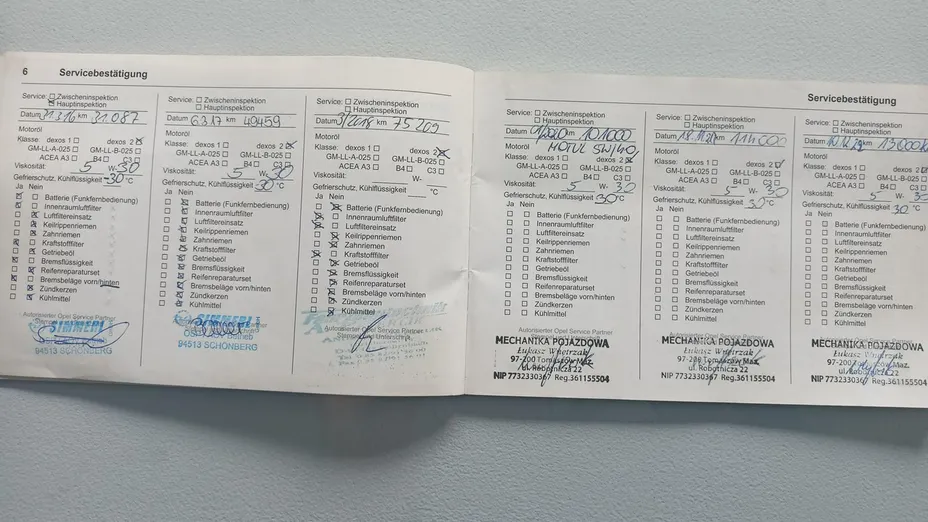 6 Servicebestätigung
Service: Zwischeninspektion
Hauptinspektion
Datum 31.3.16 km 31.087
Motoröl
Klasse: dexos 1 dexos 2
GM-LL-A-025 GM-LL-B-025
ACEA A3 B4 C3
Viskosität: 5 W- 30
Gefrierschutz, Kühlflüssigkeit -30 °C
Ja Nein
Batterie (Funkfernbedienung)
Innenraumluftfilter
Luftfiltereinsatz
Keilrippenriemen
Zahnriemen
Kraftstofffilter
Getriebeöl
Bremsflüssigkeit
Reifenreparaturset
Bremsbeläge vorn/hinten
Zündkerzen
Kühlmittel
94513 SCHÖNBERG
Service: Zwischeninspektion
Hauptinspektion
Datum 6.3.17 km 49459
Motoröl
Klasse: dexos 1 dexos 2
GM-LL-A-025 GM-LL-B-025
ACEA A3 B4 C3
Viskosität: 5 W- 30
Gefrierschutz, Kühlflüssigkeit 30 °C
Ja Nein
Batterie (Funkfernbedienung)
Innenraumluftfilter
Luftfiltereinsatz
Keilrippenriemen
Zahnriemen
Kraftstofffilter
Getriebeöl
Bremsflüssigkeit
Reifenreparaturset
Bremsbeläge vorn/hinten
Zündkerzen
Kühlmittel
94513 SCHÖNBERG
Service: Zwischeninspektion
Hauptinspektion
Datum 3/2018 km 75209
Motoröl
Klasse: dexos 1 dexos 2
GM-LL-A-025 GM-LL-B-025
ACEA A3 B4 C3
Viskosität: W-
Gefrierschutz, Kühlflüssigkeit °C
Ja Nein
Batterie (Funkfernbedienung)
Innenraumluftfilter
Luftfiltereinsatz
Keilrippenriemen
Zahnriemen
Kraftstofffilter
Getriebeöl
Bremsflüssigkeit
Reifenreparaturset
Bremsbeläge vorn/hinten
Zündkerzen
Kühlmittel
Autorisierter Opel Service Partner
Servicebestätigung
Service: Zwischeninspektion
Hauptinspektion
Datum km 101000
Motoröl MOTUL 5W/40
Klasse: dexos 1 dexos 2
GM-LL-A-025 GM-LL-B-025
ACEA A3 B4 C3
Viskosität: 5 W- 30
Gefrierschutz, Kühlflüssigkeit 30 °C
Ja Nein
Batterie (Funkfernbedienung)
Innenraumluftfilter
Luftfiltereinsatz
Keilrippenriemen
Zahnriemen
Kraftstofffilter
Getriebeöl
Bremsflüssigkeit
Reifenreparaturset
Bremsbeläge vorn/hinten
Zündkerzen
Kühlmittel
Autorisierter Opel Service Partner
MECHANIKA POJAZDOWA
Łukasz
97-200 Tomaszów Maz.
ul. Robotnicza 22
NIP 7732330367 Reg.361155504
Service: Zwischeninspektion
Hauptinspektion
Datum km 114000
Motoröl
Klasse: dexos 1 dexos 2
GM-LL-A-025 GM-LL-B-025
ACEA A3 B4 C3
Viskosität: 5 W- 30
Gefrierschutz, Kühlflüssigkeit 30 °C
Ja Nein
Batterie (Funkfernbedienung)
Innenraumluftfilter
Luftfiltereinsatz
Keilrippenriemen
Zahnriemen
Kraftstofffilter
Getriebeöl
Bremsflüssigkeit
Reifenreparaturset
Bremsbeläge vorn/hinten
Zündkerzen
Kühlmittel
Autorisierter Opel Service Partner
MECHANIKA POJAZDOWA
Łukasz
97-200 Tomaszów Maz.
ul. Robotnicza 22
NIP 7732330367 Reg.361155504
Service: Zwischeninspektion
Hauptinspektion
Datum km
Motoröl
Klasse: dexos 1 dexos 2
GM-LL-A-025 GM-LL-B-025
ACEA A3 B4 C3
Viskosität: 5 W- 30
Gefrierschutz, Kühlflüssigkeit 30 °C
Ja Nein
Batterie (Funkfernbedienung)
Innenraumluftfilter
Luftfiltereinsatz
Keilrippenriemen
Zahnriemen
Kraftstofffilter
Getriebeöl
Bremsflüssigkeit
Reifenreparaturset
Bremsbeläge vorn/hinten
Zündkerzen
Kühlmittel
Autorisierter Opel Service Partner
MECHANIKA POJAZDOWA
Łukasz
Tomaszów Maz.
ul. Robotnicza 22
NIP 7732330367 Reg.361155504